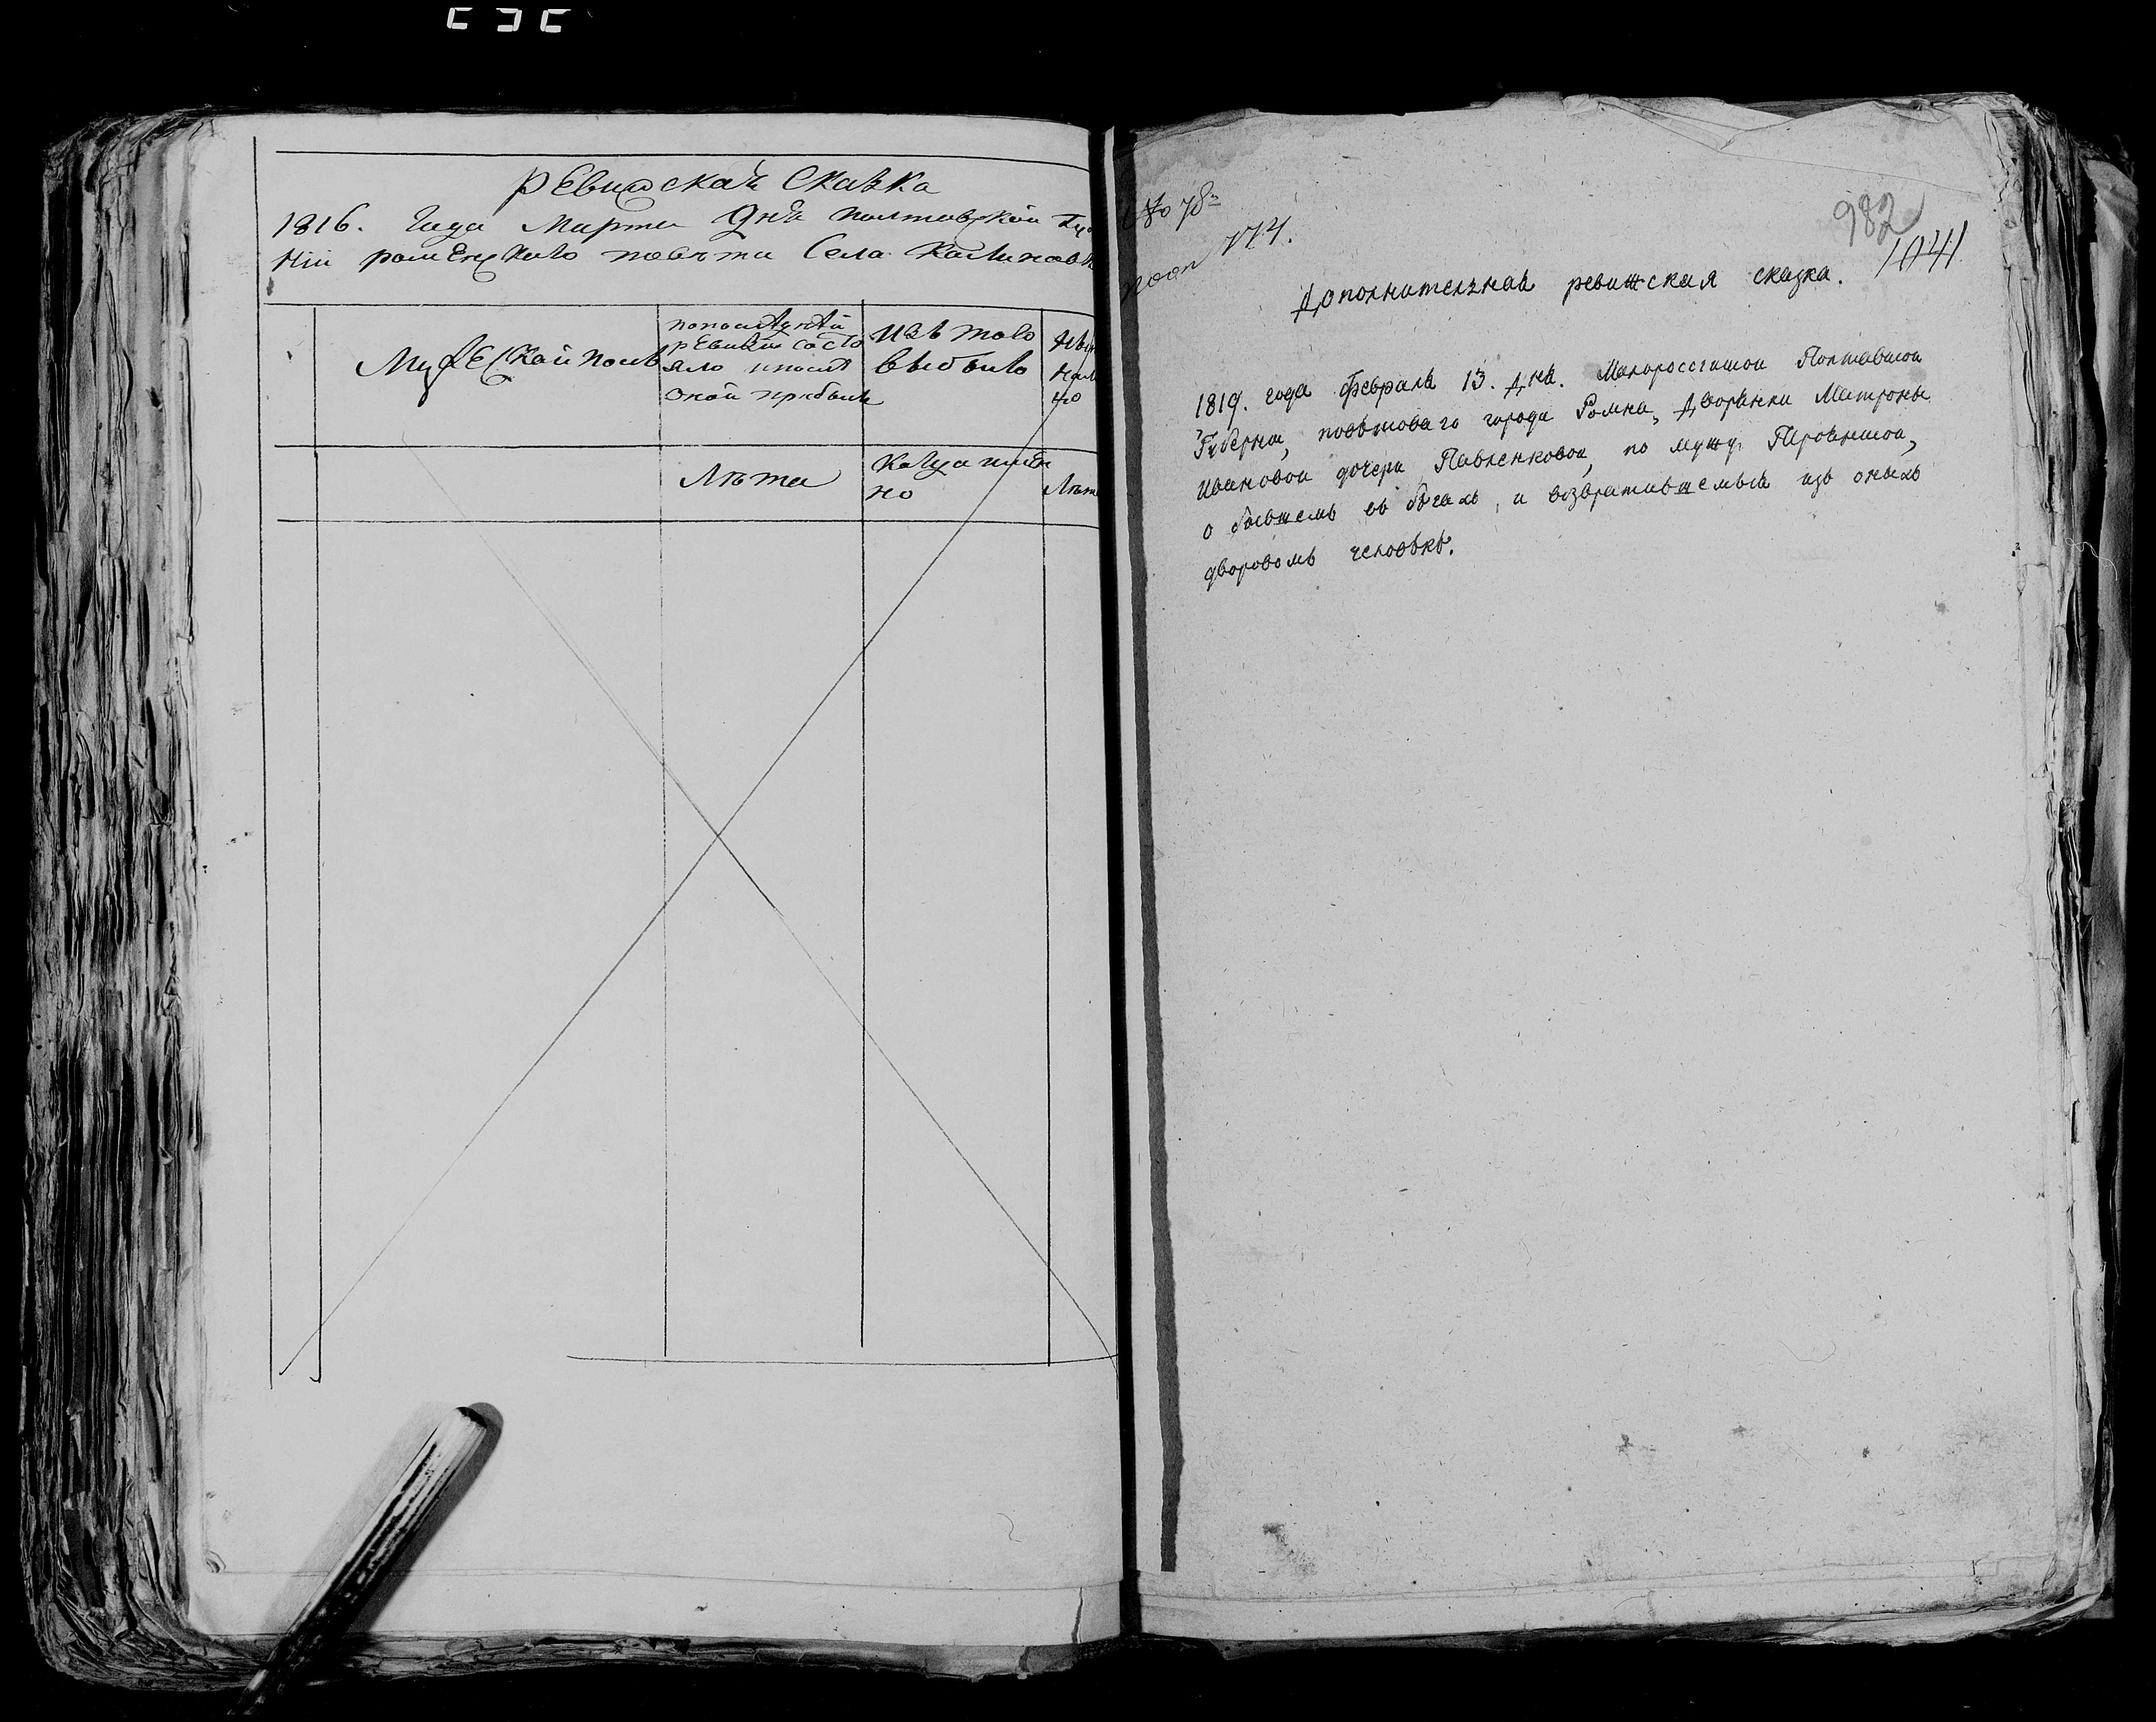 Ревизская Сказка
1816. Года Марта Дня Полтавской Гу
нии роменского повета Села Калиновк
Мужеский полъ
по последней
ревизии состо
яло и после
оной прибыло
Изъ того
выбыло
Лета
Когда имян
но
Лет
№ 78
774.
982
1041
Дополнительная ревижская сказка.
1819. года февраля 13. дня. Малороссийской Полтавской
Губернии, поветоваго города Ромна, Дворянки Матроны
Ивановой дочери Павленковой, по мужу
о бывшемъ въ бегахъ, и возвратившемься изъ оныхъ
дворовомъ человеке.